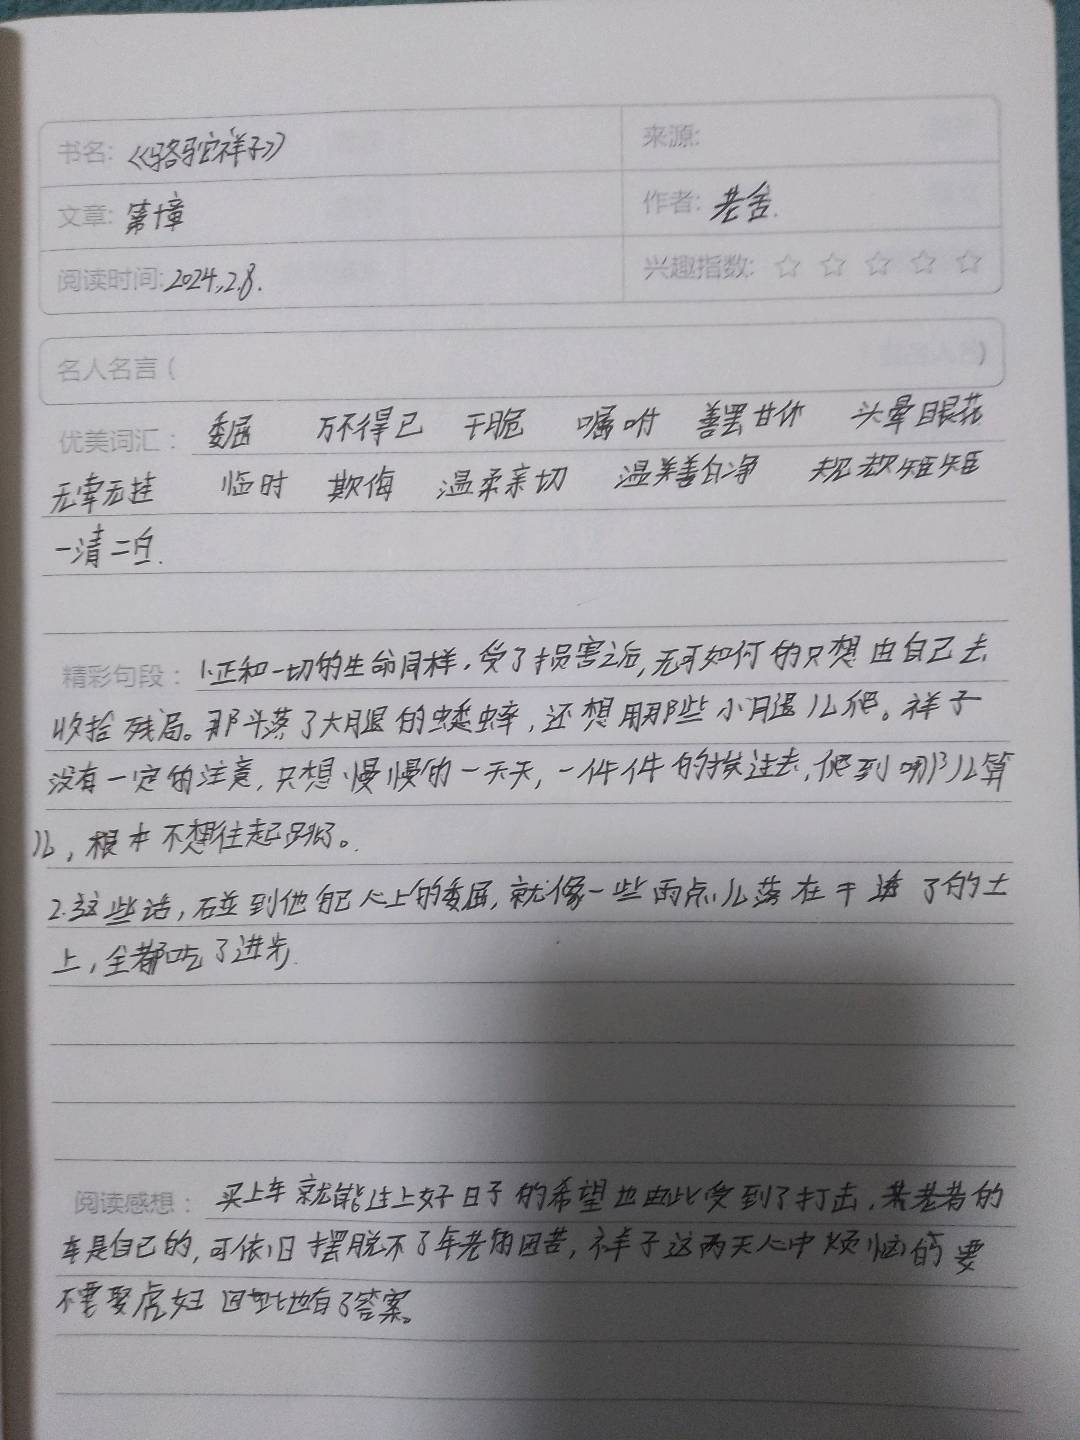 书名: 《骆驼祥子》 来源:
文章: 第十章 作者: 老舍.
阅读时间: 2024.2.8. 兴趣指数: ☆ ☆ ☆ ☆ ☆
名人名言 ( )
优美词汇: 委屈 万不得已 干脆 嘱咐 善罢甘休 头晕眼花
无牵无挂 临时 欺侮 温柔亲切 温美善白净 规规矩矩
一清二白.
精彩句段: 1.正和一切的生命同样,受了损害之后,无可如何的只想由自己去
收拾残局。那斗落了大腿的蟋蟀,还想用那些小腿儿爬。祥子
没有一定的注意,只想慢慢的一天天,一件件的挨过去,爬到哪儿算
儿,根本不想往起跳了。
2.这些话,碰到他自己心上的委屈,就像一些雨点儿落在干透了的土
上,全都吃了进步.
阅读感想: 买上车就能过上好日子的希望也由此受到了打击,老者的
车是自己的,可依旧摆脱不了年老的困苦,祥子这两天心中烦恼的要
不要娶虎妞因此也有了答案。